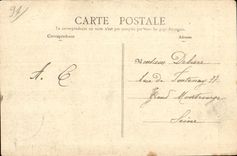 CARTE POSTALE
La correspondance au recto n'est pas acceptée par tous les pays étrangers
Correspondance
Adresse
A. C
Monsieur
rue de Fontenay 77
Grand Montrouge
Seine